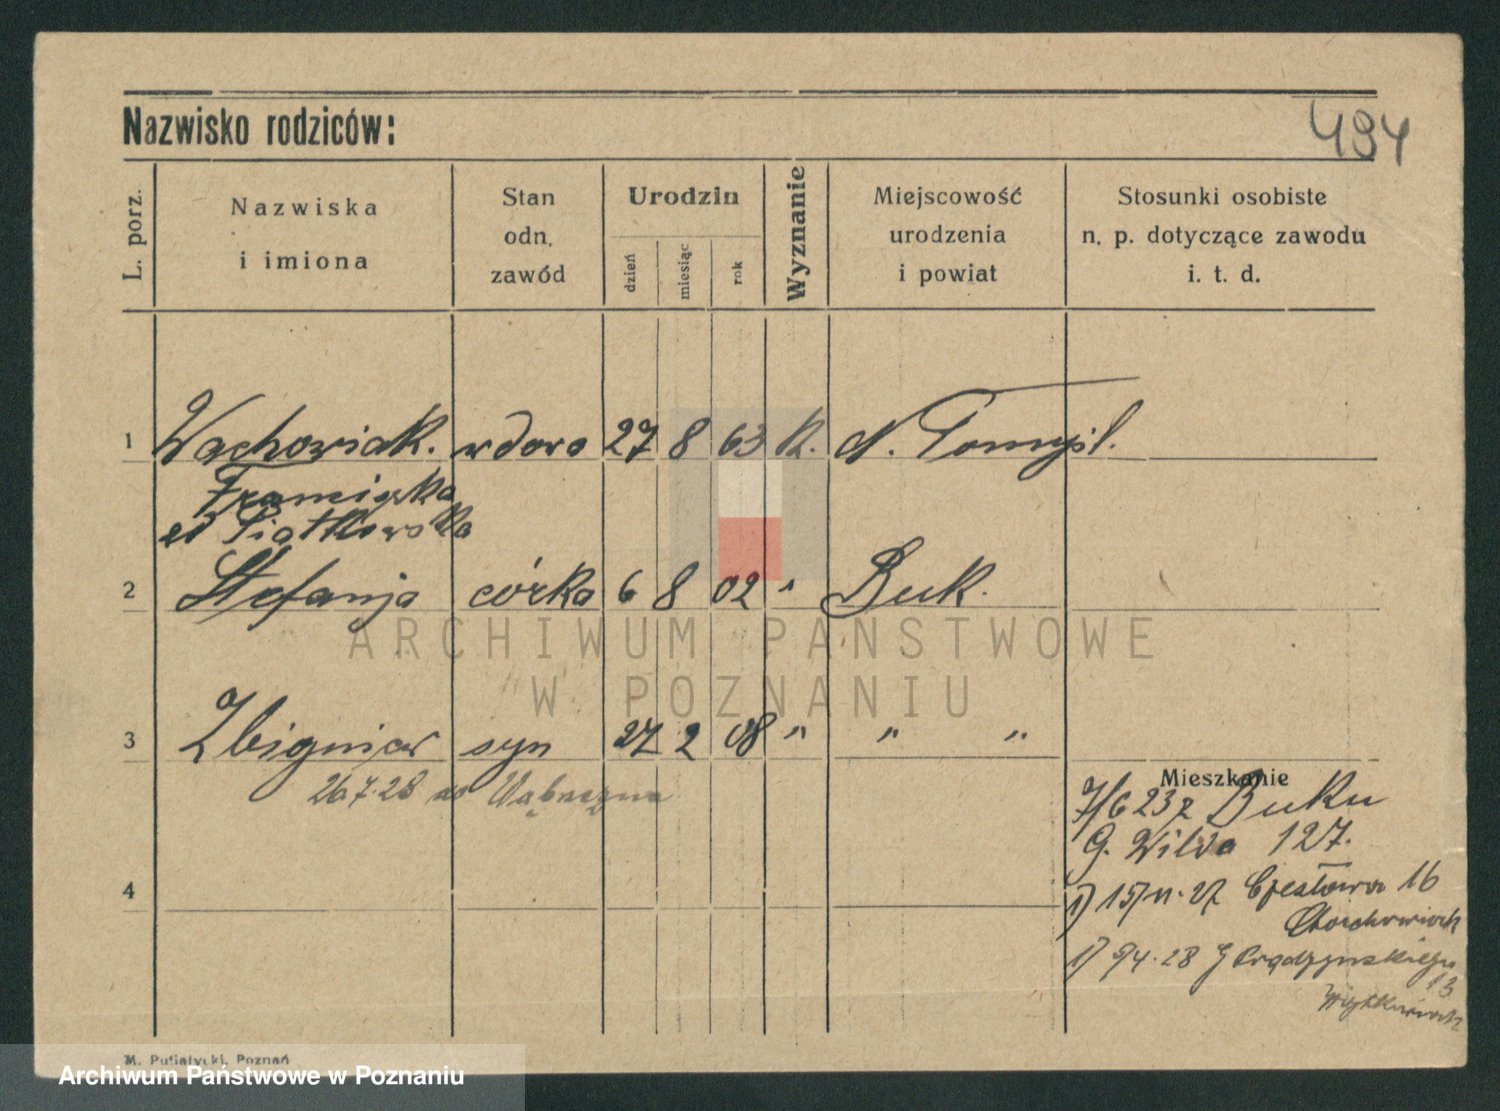 Nazwisko rodziców:
494
L. porz.
Nazwiska
i imiona
Stan
odn.
zawód
Urodzin
dzień
miesiąc
rok
Wyznanie
Miejscowość
urodzenia
i powiat
Stosunki osobiste
n. p. dotyczące zawodu
i. t. d.
1 Wachowiak. wdowa 27 8 63 K. N. Tomyśl.
Franciszka
Piątkowska
2 Stefanja córka 6 8 02 " Buk.
3 Zbigniew syn 27 2 08 " " "
26.7.28 do Wąbrzeźna
4
Mieszkanie
7/6 23 z Buku
G. Wilda 127.
1) 15/11.27 16
1) 5/4.28 Prądzyńskiego
13
ARCHIWUM PAŃSTWOWE
W POZNANIU
M. Putiatycki, Poznań
Archiwum Państwowe w Poznaniu